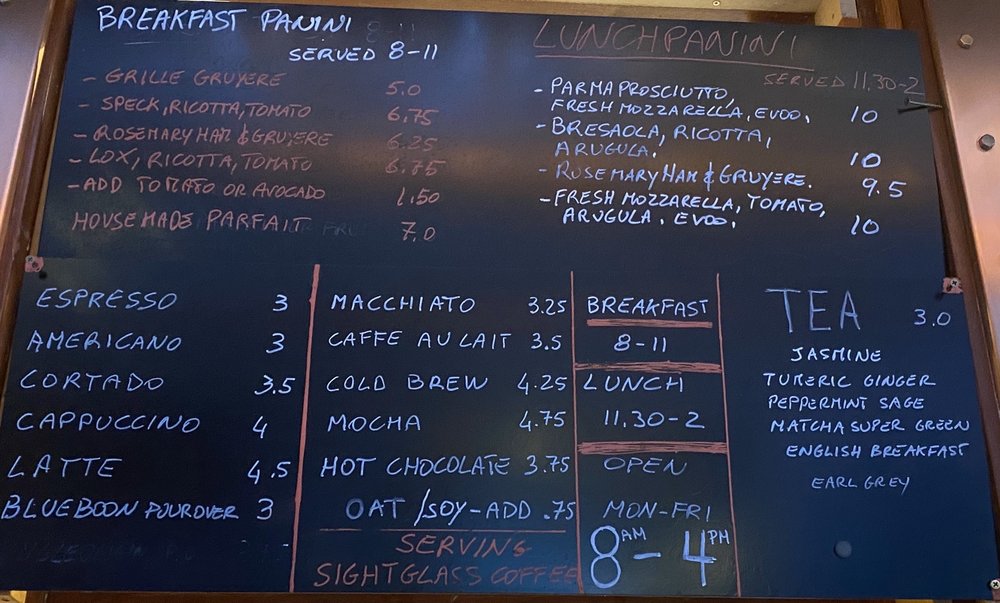 BREAKFAST PANINI
SERVED 8-11
- GRILLE GRUYERE 5.0
- SPECK, RICOTTA, TOMATO 6.75
- ROSEMARY HAM & GRUYERE 6.25
- LOX, RICOTTA, TOMATO 6.75
- ADD TOMATO OR AVOCADO 1.50
HOUSEMADE PARFAIT 7.0
LUNCH PANINI
SERVED 11.30-2
- PARMA PROSCIUTTO,
FRESH MOZZARELLA, EVOO, 10
- BRESAOLA, RICOTTA,
ARUGULA. 10
- ROSEMARY HAM & GRUYERE. 9.5
- FRESH MOZZARELLA, TOMATO,
ARUGULA, EVOO, 10
ESPRESSO 3
AMERICANO 3
CORTADO 3.5
CAPPUCCINO 4
LATTE 4.5
BLUEBOON POUROVER 3
MACCHIATO 3.25
CAFFE AU LAIT 3.5
COLD BREW 4.25
MOCHA 4.75
HOT CHOCOLATE 3.75
OAT/SOY-ADD .75
SERVING
SIGHTGLASS COFFEE
BREAKFAST
8-11
LUNCH
11.30-2
OPEN
MON-FRI
8AM-4PM
TEA 3.0
JASMINE
TUMERIC GINGER
PEPPERMINT SAGE
MATCHA SUPER GREEN
ENGLISH BREAKFAST
EARL GREY